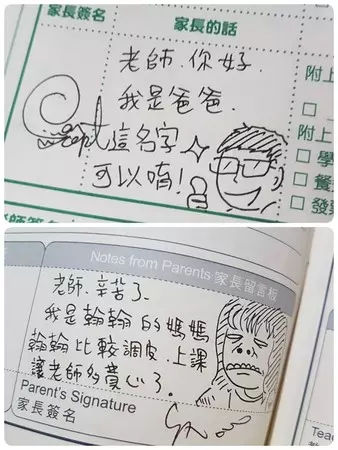 家長簽名
家長的話
老師.你好.
我是爸爸.
這名字
可以唷!
附上
附上
學
餐
發票
師簽名
Notes from Parents 家長留言板
老師.辛苦了.
我是翰翰的媽媽
翰翰比較調皮.上課
讓老師多費心了.
Parent's Signature
家長簽名
Teac
教